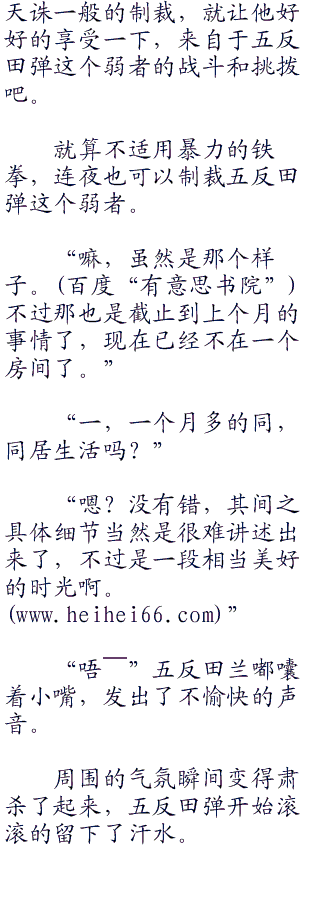 天诛一般的制裁，就让他好
好的享受一下，来自于五反
田弹这个弱者的战斗和挑拨
吧。
就算不适用暴力的铁
拳，连夜也可以制裁五反田
弹这个弱者。
“嘛，虽然是那个样
子。(百度“有意思书院”)
不过那也是截止到上个月的
事情了，现在已经不在一个
房间了。”
“一，一个月多的同，
同居生活吗？”
“嗯？没有错，其间之
具体细节当然是很难讲述出
来了，不过是一段相当美好
的时光啊。
(www.heihei66.com)”
“唔￣”五反田兰嘟囔
着小嘴，发出了不愉快的声
音。
周围的气氛瞬间变得肃
杀了起来，五反田弹开始滚
滚的留下了汗水。